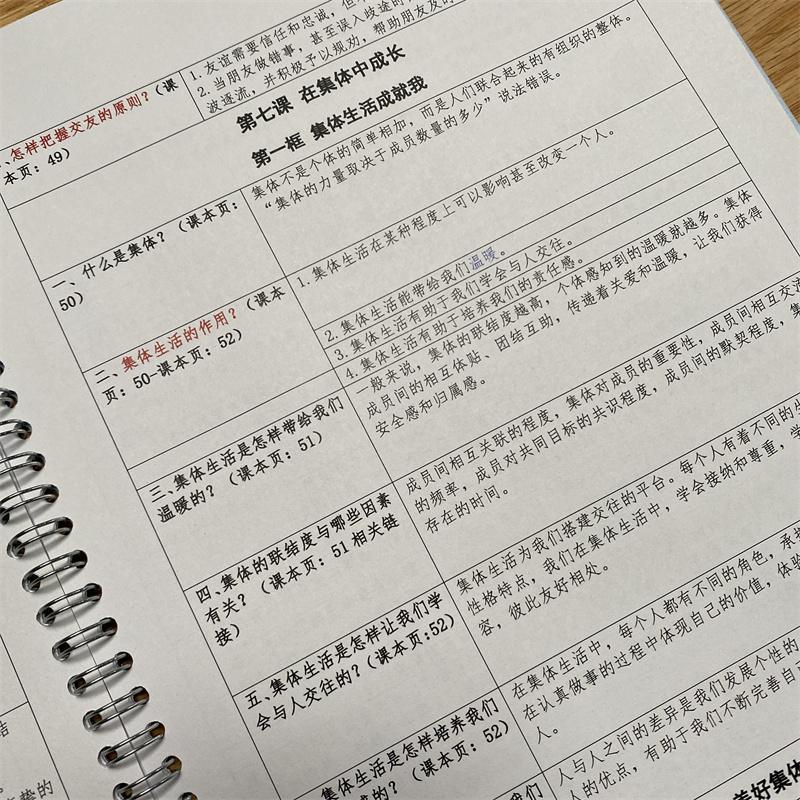 1. 友谊需要信任和忠诚，但
2. 当朋友做错事，甚至误入歧途时
波逐流，并积极予以规劝，帮助朋友
、怎样把握交友的原则？（课
本页：49）
第七课 在集体中成长
第一框 集体生活成就我
一、什么是集体？（课本页：
50）
集体不是个体的简单相加，而是人们联合起来的有组织的整体。
“集体的力量取决于成员数量的多少”说法错误。
二、集体生活的作用？（课本
页：50-课本页：52）
1. 集体生活在某种程度上可以影响甚至改变一个人。
2. 集体生活能带给我们温暖。
3. 集体生活有助于我们学会与人交往。
4. 集体生活有助于培养我们的责任感。
三、集体生活是怎样带给我们
温暖的？（课本页：51）
一般来说，集体的联结度越高，个体感知到的温暖就越多。集体
成员间的相互体贴、团结互助，传递着关爱和温暖，让我们获得
安全感和归属感。
四、集体的联结度与哪些因素
有关？（课本页：51 相关链
接）
成员间相互关联的程度，集体对成员的重要性，成员间相互交流
的频率，成员对共同目标的共识程度，成员间的默契程度，集
存在的时间。
五、集体生活是怎样让我们学
会与人交往的？（课本页：52）
集体生活为我们搭建交往的平台。每个人有着不同的生
性格特点，我们在集体生活中，学会接纳和尊重，学
容，彼此友好相处。
集体生活是怎样培养我们
的？（课本页：52）
在集体生活中，每个人都有不同的角色，承担
在认真做事的过程中体现自己的价值，体验
人。
人与人之间的差异是我们发展个性的
人的优点，有助于我们不断完善自
美好集体